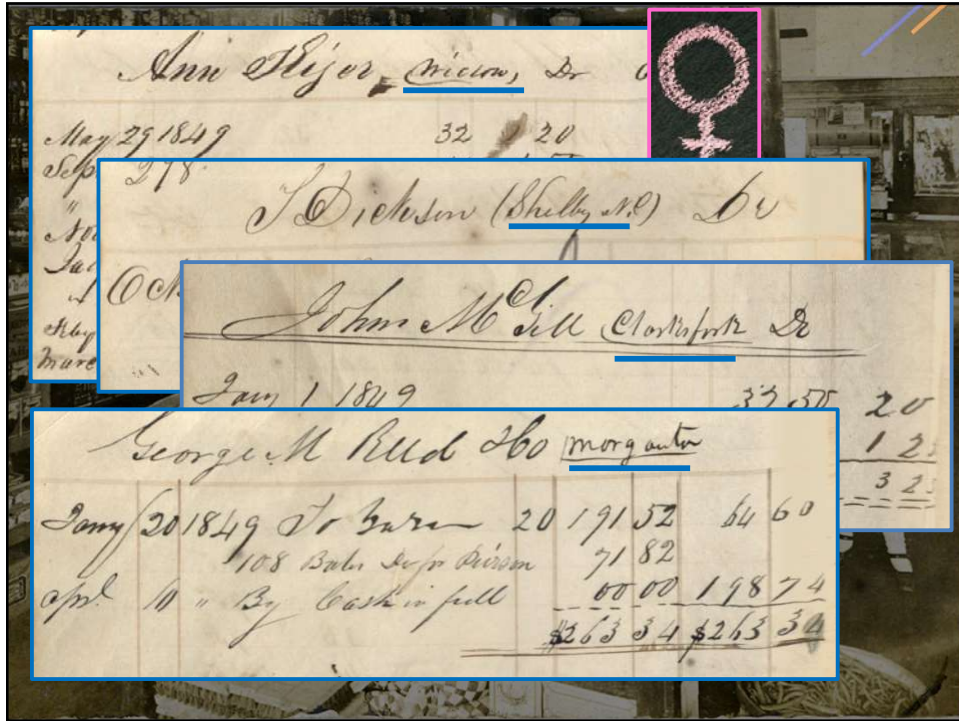 Ann (widow) Dr
May 29 1849 32 20
Sep 27 8
"
Nov
Jan
"
May
Marc
J Dickson (Shelby N.C) Dr
Oct
John McGill Clarksfork Dr
Jany 1 1849 33 50 20
1 2
3 2
George M Reed & Co morganton
Jany 20 1849 To 20 191 52 64 60
108 Bales Do for Pierson 71 82
Apl 10 " By Cash in full 00 00 198 74
$263 34 $263 34